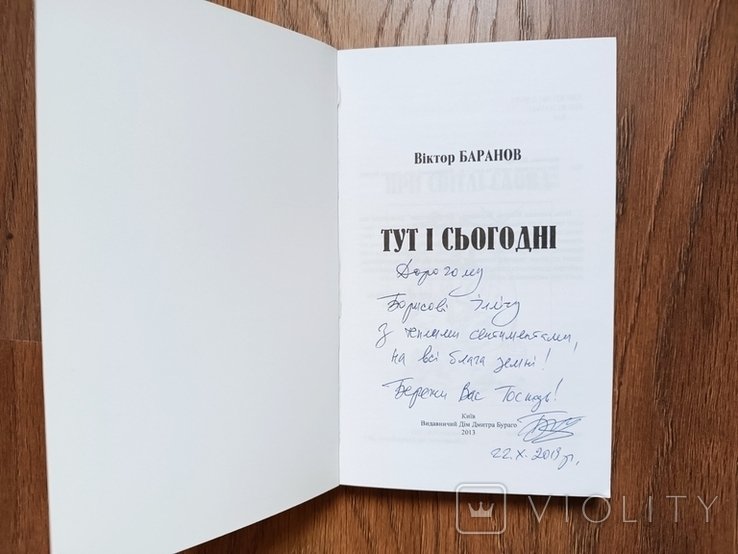 Віктор БАРАНОВ
ТУТ І СЬОГОДНІ
Дорогому
Борисові Іллічу
З теплими сентиментами,
на всі блага земні!
Бережи Вас Господь!
Київ
Видавничий Дім Дмитра Бураго
2013
22.X.2013 р.
VIOLITY